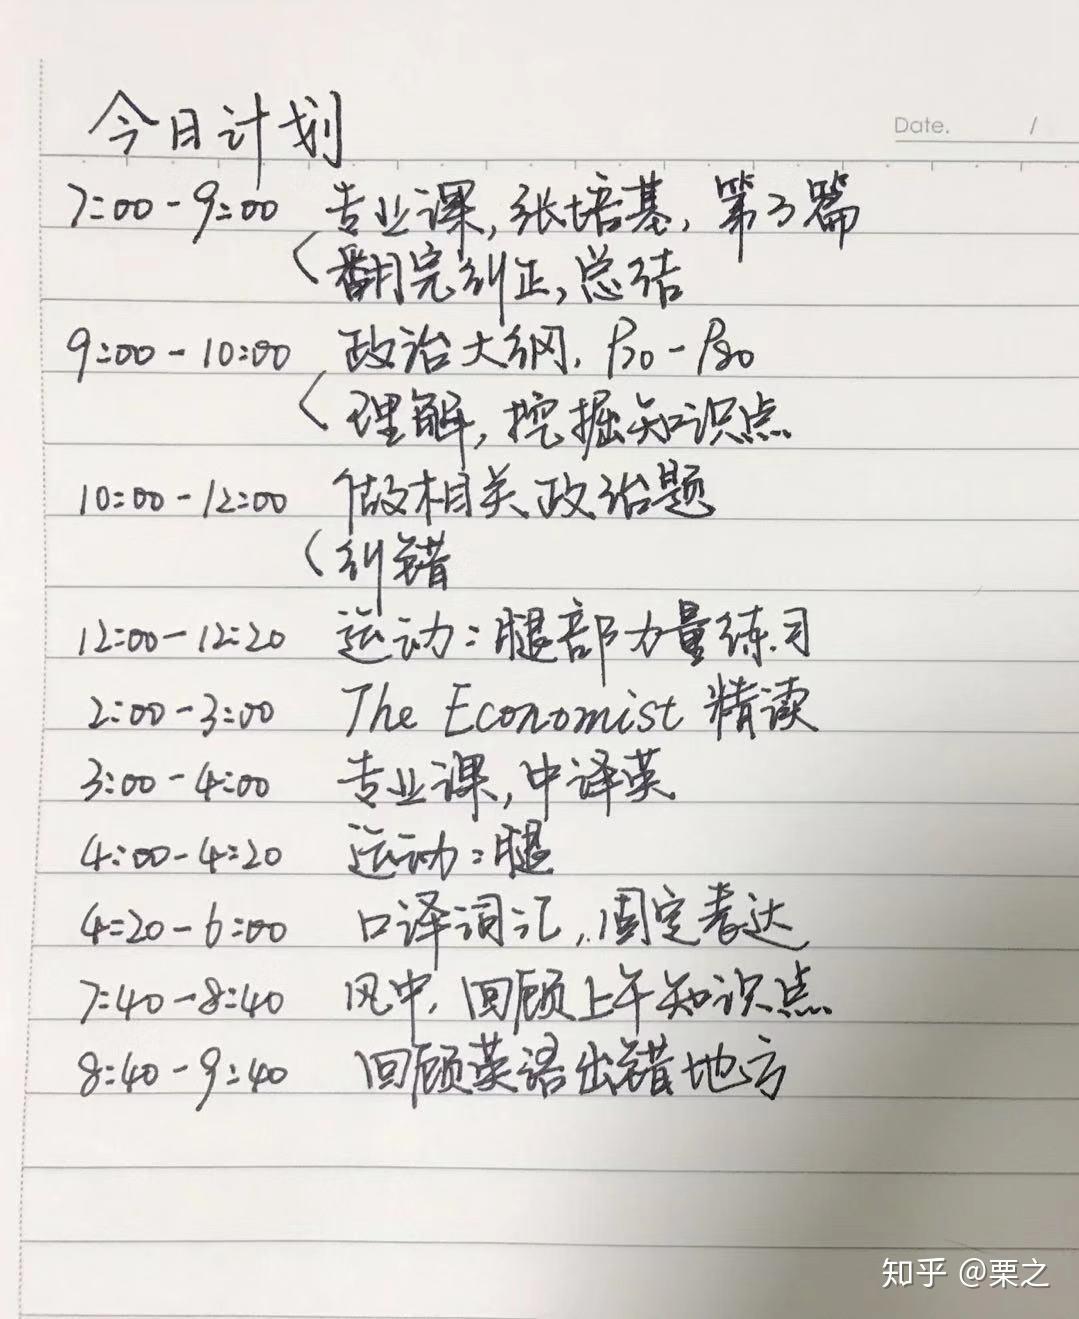 今日计划
Date. /
7:00-9:00 专业课,张培基,第3篇
(翻完纠正,总结
9:00-10:00 政治大纲. P30-P80
(理解,挖掘知识点
10:00-12:00 做相关政治题
(纠错
12:00-12:20 运动:腿部力量练习
2:00-3:00 The Economist 精读
3:00-4:00 专业课,中译英
4:00-4:20 运动:腿
4:20-6:00 口译词汇,固定表达
7:40-8:40 风中,回顾上午知识点
8:40-9:40 回顾英语出错地方
知乎 @栗之